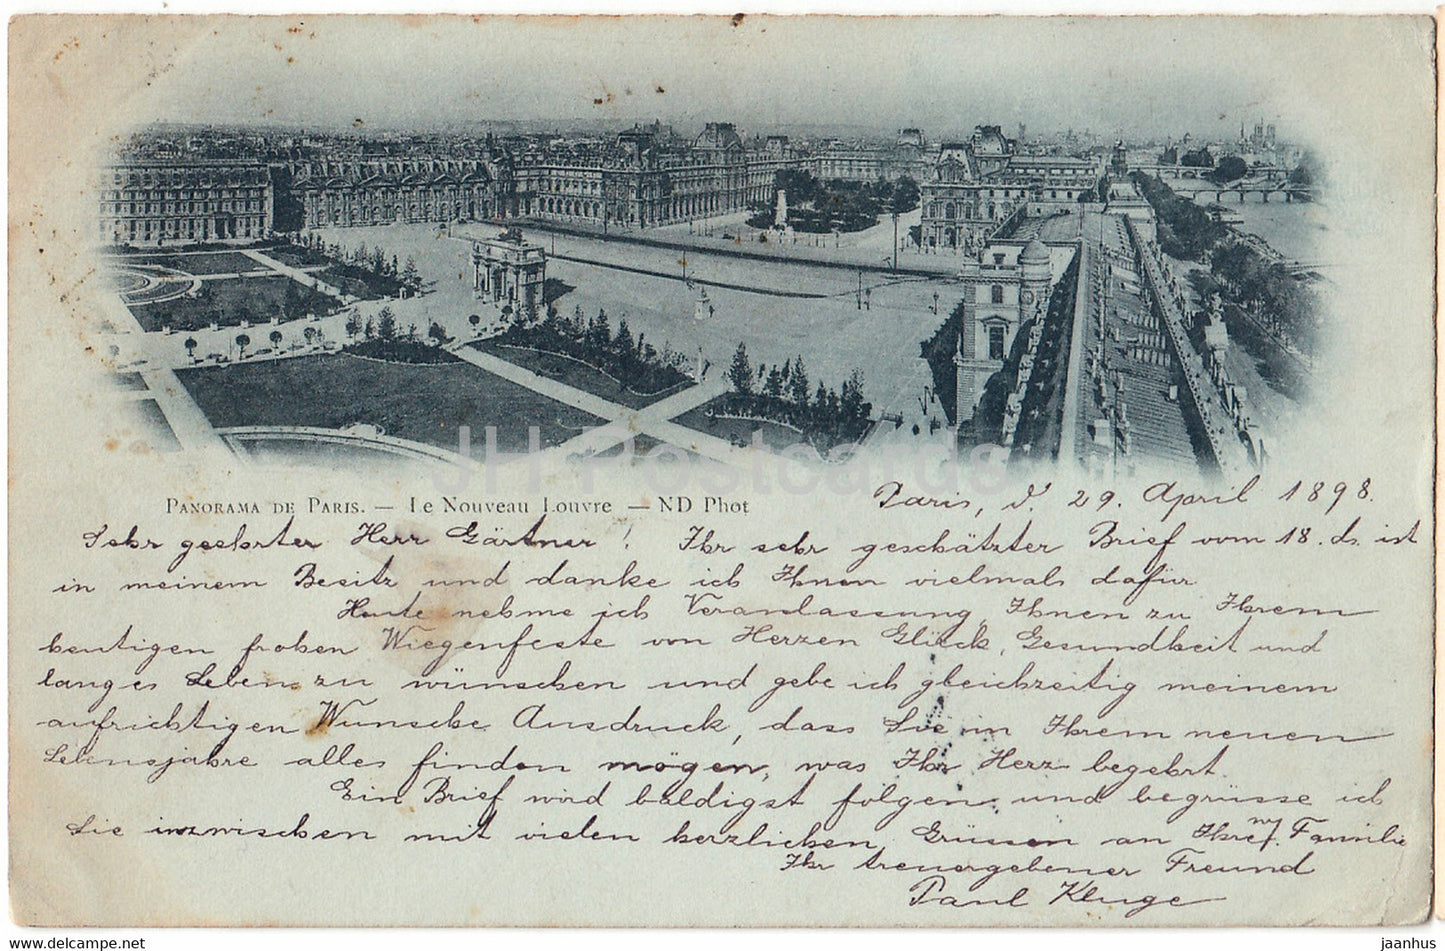 JH Postcards
PANORAMA DE PARIS. — Le Nouveau Louvre — ND Phot
Paris, d. 29. April 1898.
Sehr geehrter Herr Gärtner! Ihr sehr geschätzter Brief vom 18. ds. ist
in meinem Besitz und danke ich Ihnen vielmals dafür
Heute nehme ich Veranlassung, Ihnen zu Ihrem
heutigen frohen Wiegenfeste von Herzen Glück, Gesundheit und
langes Leben zu wünschen und gebe ich gleichzeitig meinem
aufrichtigen Wunsche Ausdruck, dass Sie in Ihrem neuen
Lebensjahre alles finden mögen, was Ihr Herz begehrt.
Ein Brief wird baldigst folgen und begrüsse ich
Sie inzwischen mit vielen herzlichen Grüssen an Ihre Familie
Ihr treuergebener Freund
Paul Kluge
delcampe.net
jaanhus